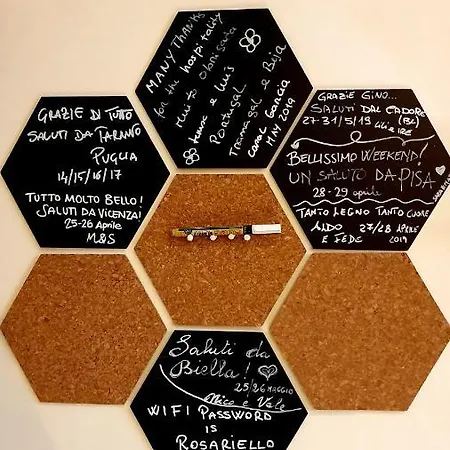 MANY THANKS
for the hospitality
Portugal
MAY 2019
GRAZIE DI TUTTO
SALUTI DA TARANTO
PUGLIA
14/15/16/17
TUTTO MOLTO BELLO!
SALUTI DA VICENZA!
25-26 Aprile
M&S
GRAZIE GINO...
SALUTI DAL CADORE
27-31/5/19 (BL)
BELLISSIMO WEEKEND!
UN SALUTO DA PISA
28-29 aprile
TANTO LEGNO TANTO CUORE
27/28 APRILE
E FEDE 2019
Saluti da
Biella!
25/26 MAGGIO
Nico e Vale
WIFI PASSWORD
IS
ROSARIELLO